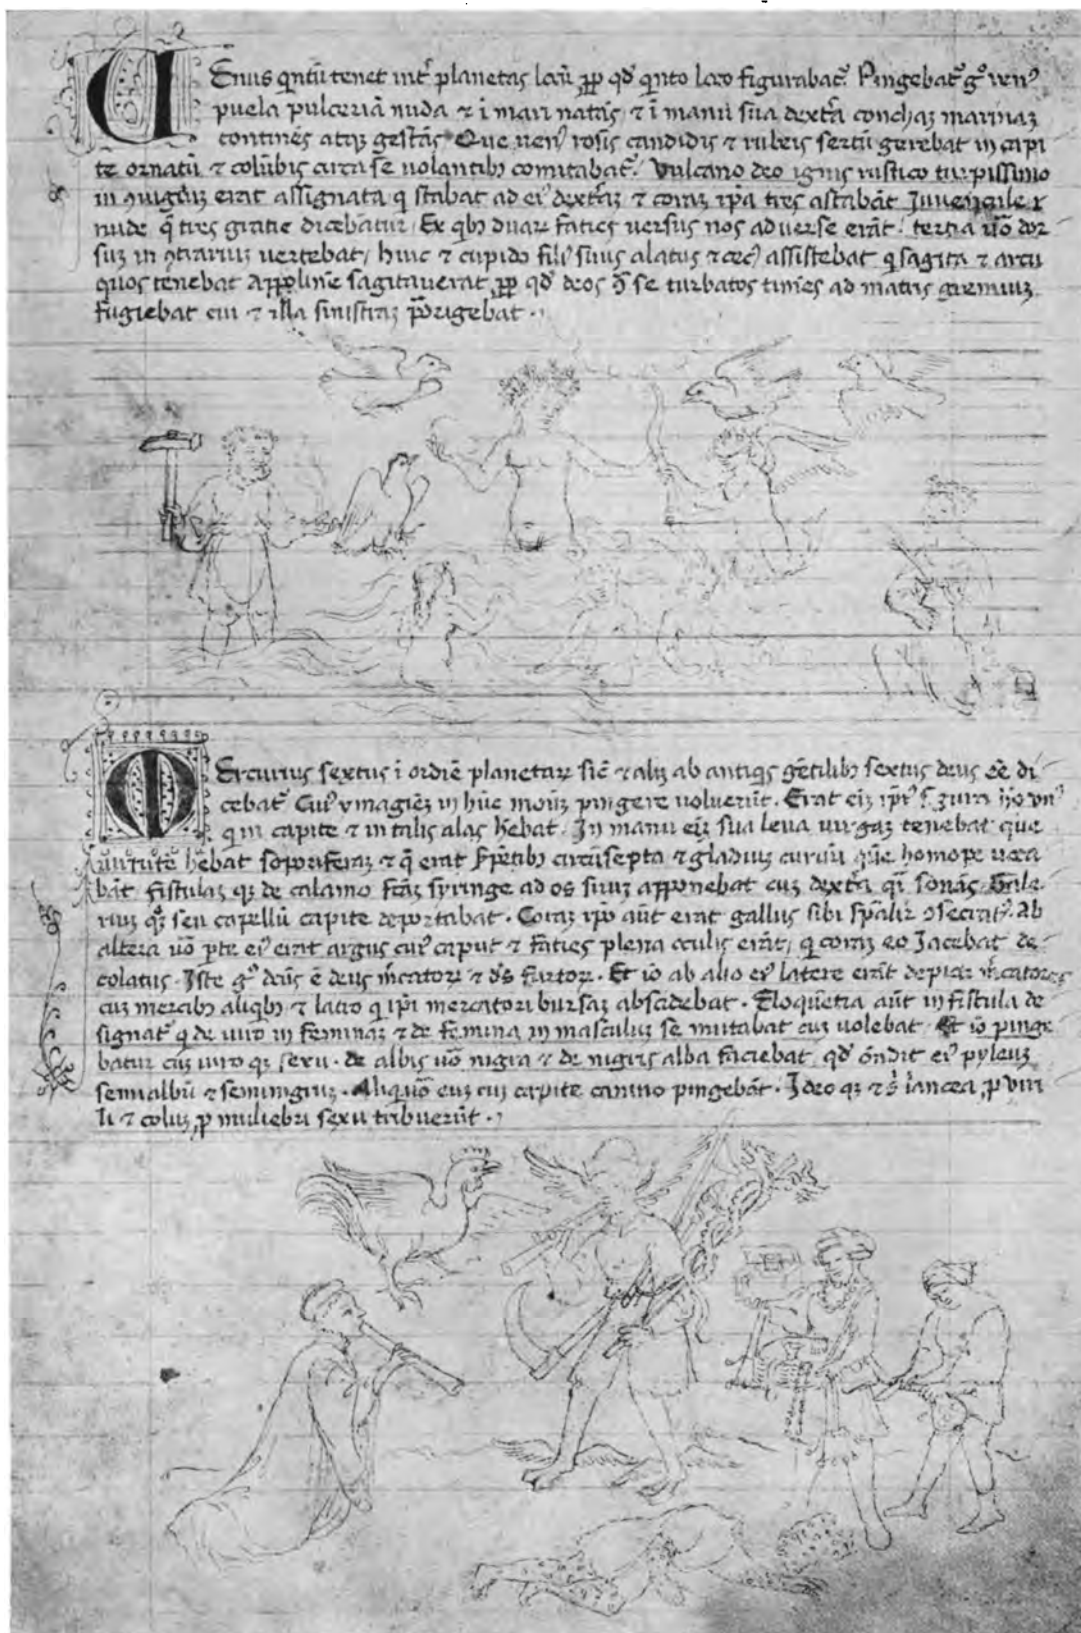 VEnus qntū tenet int̄ planetas locū ꝓp qd̓ qinto loco figurabat᷑. Pingebat᷑ g̊ ven᷒
puela pulcerīā nuda ⁊ ī mari natās ⁊ ī manu sua dextra conchaꝫ marinaꝫ
continēs atqꝫ gestās Que uen᷒ rosis candidis ⁊ rubeis sertū gerebat in capi
te ornatū ⁊ colūbis circa se uolantibꝫ comitabat᷑. Vulcano deo ignis rustico turpissimo
in ꝯiugiuꝫ erat assignata q stabat ad ei᷒ dextrāꝫ ⁊ coraꝫ ip̄a tres astabāt Juuencule
nude q̄ tres gratie dicebātur, Ex qbꝫ duaꝝ faties uersus nos aduerse erāt. tertia uo̊ dor
suꝫ in ꝯtrariuꝫ uertebat, huic ⁊ cupido fili᷒ suus alatus ⁊ cec᷒ assistebat q sagita ⁊ arcu
quos tenebat Appolinē sagitauerat, ꝓp qd̓ deos ꝯ̄ se turbatos timēs ad matris gremiuꝫ
fugiebat cui ⁊ illa sinistraꝫ p̄origebat .
MErcurius sextus ī ordīe planetaꝝ sic̄ ⁊ aliꝫ ab antiqs gētilibꝫ sextus deus ēē di
cebat᷑. Cui᷒ ymagīeꝫ in hūc moduꝫ pingere uoluerūt. Erat eiꝫ
q in capite ⁊ in talis alas hēbat. In manu eiꝫ sua leua uirgaꝫ tenebat que
uirtutē hēbat soporiferaꝫ ⁊ q̄ erat s̄pētibꝫ circūsepta ⁊ gladiuꝫ curuū quē homope uoca
bāt. fistulaꝫ qꝫ de calamo fc̄āꝫ syringe ad os suuꝫ apponebat cuꝫ dextra qi sonās. Gale
riuꝫ qꝫ seu capellū capite deportabat. Coraꝫ ip̄o aūt erat gallus sibi sp̄aliř ꝯsecrat᷒. Ab
altera uo̊ pte ei᷒ erat argus cui᷒ caput ⁊ faties plena oculis erāt, q coraꝫ eo Jacebat de
colatus. Iste g̊ deus ē deus m̄catoꝝ ⁊ d̄s furtoꝝ. Et io̊ ab alio ei᷒ latere erāt depicti m̄catores
cuꝫ mercibꝫ aliqbꝫ ⁊ latro q ip̄i mercatori bursaꝫ abscidebat. Eloquētia aūt in fistula de
signat᷑ q de uiro in feminaꝫ ⁊ de femina in masculuꝫ se mutabat cuꝫ uolebat. Et io̊ pinge
batur cuꝫ utro qꝫ sexu. de albis uo̊ nigra ⁊ de nigris alba faciebat, qd̓ ōndit ei᷒ pyleuꝫ
semialbū ⁊ seminigruꝫ. Aliquādo euꝫ cuꝫ capite canino pingebāt. Ideo qꝫ ⁊ s̊ lancea, p uiri
li ⁊ coluꝫ, p muliebri sexu tribuerūt .